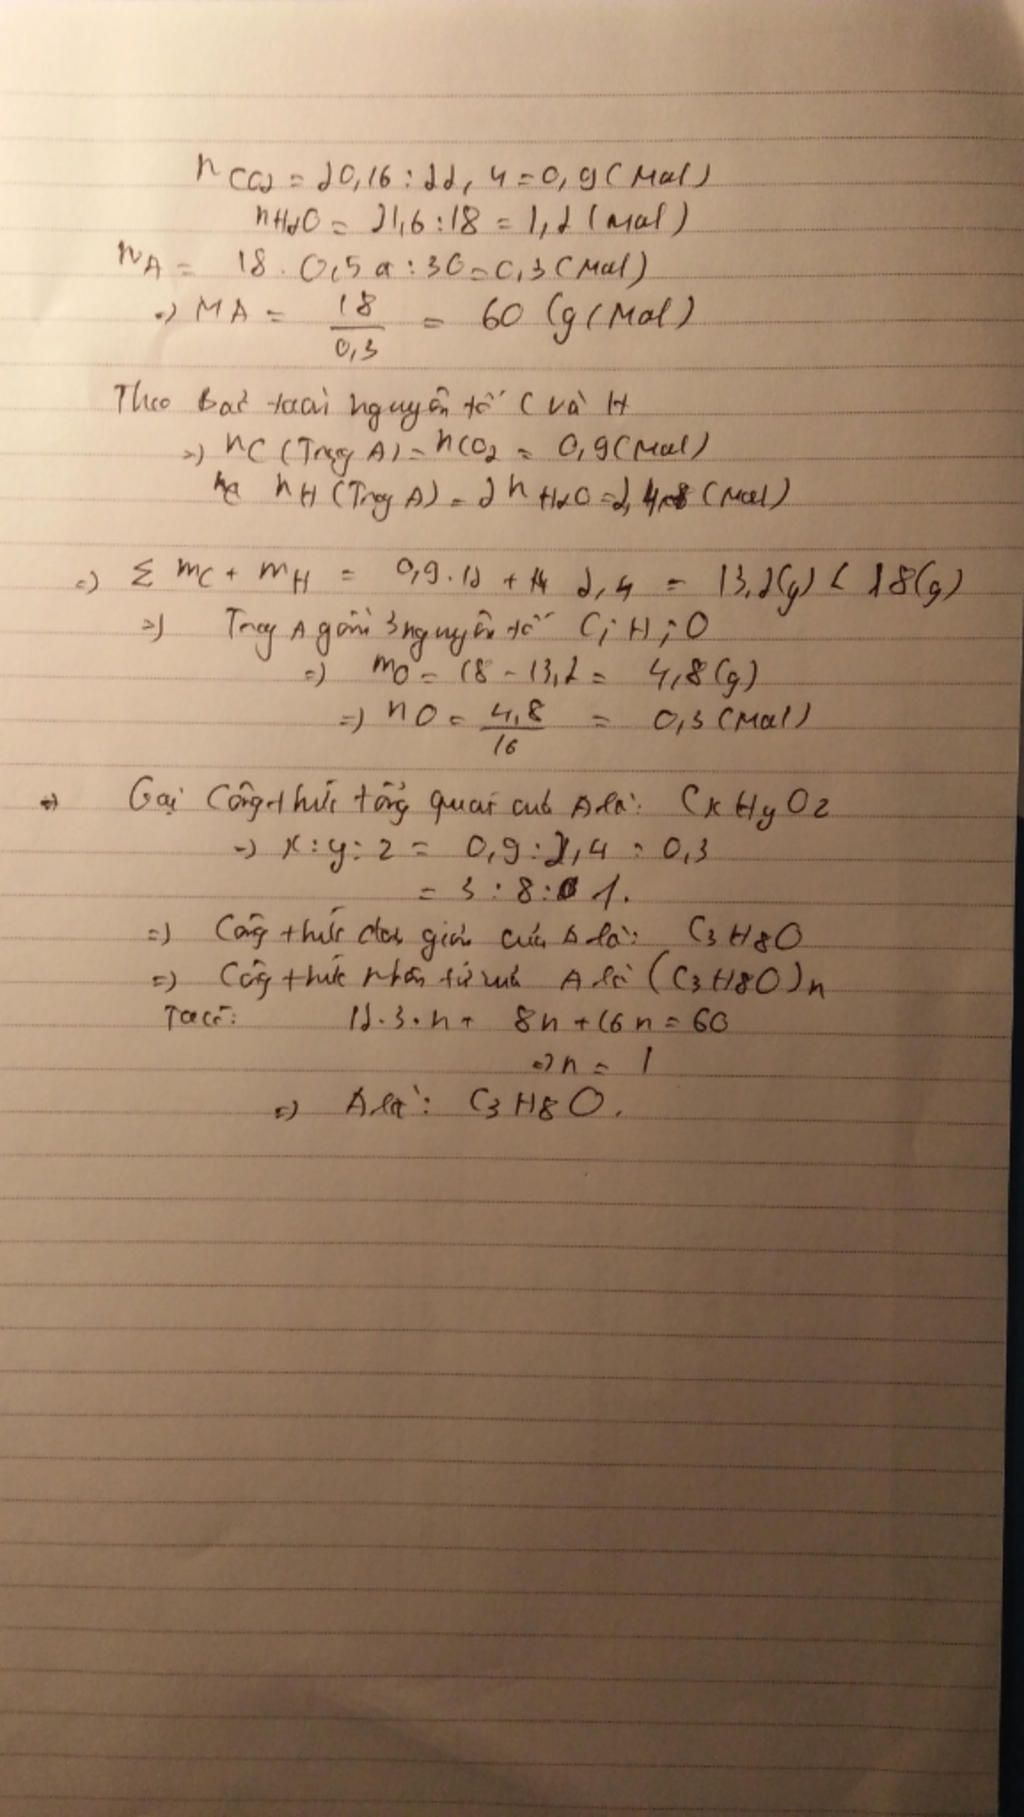 nCO2 = 20,16 : 22,4 = 0,9 (mol)
nH2O = 21,6 : 18 = 1,2 (mol)
nA = 18 . 0,5 : 30 = 0,3 (mol)
=> MA = 18/0,3 = 60 (g/mol)
Theo bảo toàn nguyên tố C và H
=> nC (Trong A) = nCO2 = 0,9 (mol)
nH (Trong A) = 2nH2O = 2,4 (mol)
=> Σ mC + mH = 0,9.12 + 2,4 = 13,2(g) < 18(g)
=> Trong A gồm 3 nguyên tố C; H; O
=> mO = 18 - 13,2 = 4,8(g)
=> nO = 4,8/16 = 0,3 (mol)
=> Gọi công thức tổng quát của A là: CxHyOz
=> x : y : z = 0,9 : 2,4 : 0,3
= 3 : 8 : 1.
=> Công thức đơn giản của A là: C3H8O
=> Công thức phân tử của A là (C3H8O)n
Ta có: 12.3.n + 8n + 16n = 60
=> n = 1
=> A là: C3H8O.